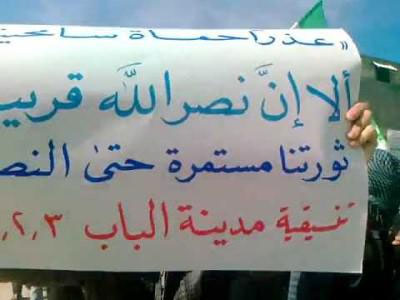 «عذراً حماة سامحينا
ألا إنَّ نصر الله قريب
ثورتنا مستمرة حتى النصر
تنسيقية مدينة الباب ٢,٣,